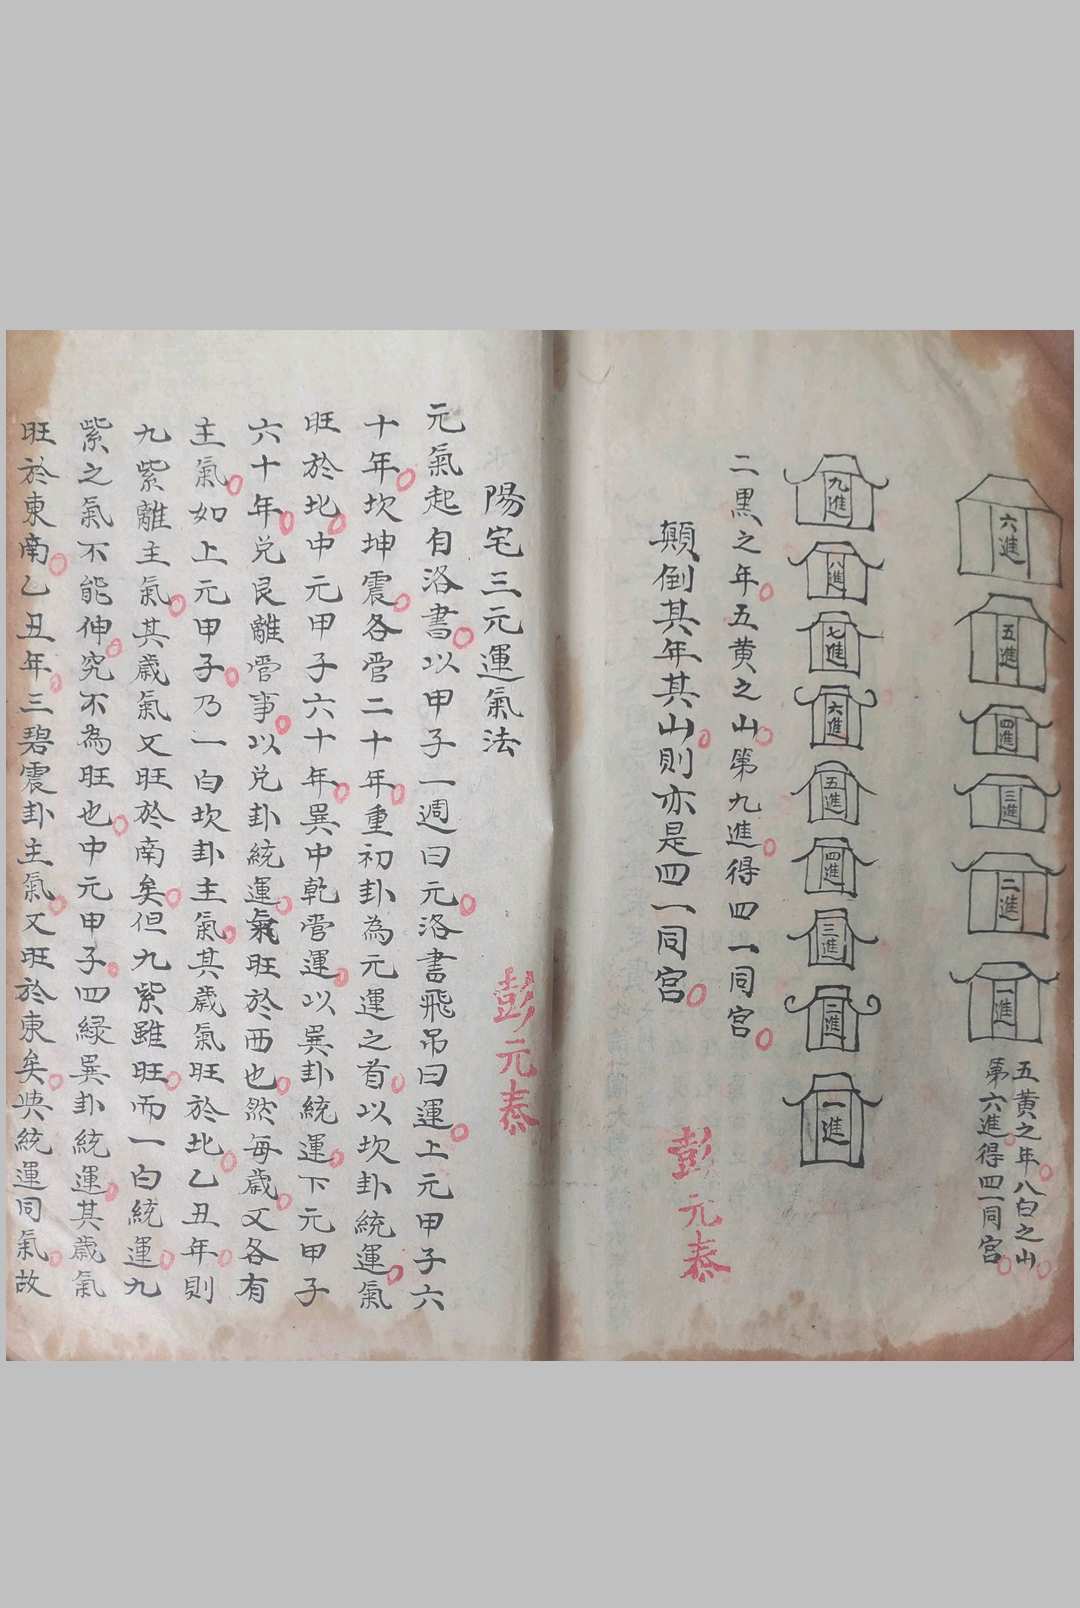 六進
五進
四進
三進
二進
一進
五黄之年八白之山
第六進得四一同宮
九進
八進
七進
六進
五進
四進
三進
二進
一進
二黑之年五黄之山第九進得四一同宮
顛倒其年其山則亦是四一同宮
彭元泰
陽宅三元運氣法
彭元泰
元氣起自洛書以甲子一週曰元洛書飛吊曰運上元甲子六
十年坎坤震各管二十年重初卦為元運之首以坎卦統運氣
旺於北中元甲子六十年巽中乾管運以巽卦統運下元甲子
六十年兌艮離管事以兌卦統運氣旺於西也然每歳又各有
主氣如上元甲子乃一白坎卦主氣其歳氣旺於北乙丑年則
九紫離主氣其歳氣又旺於南矣但九紫雖旺而一白統運九
紫之氣不能伸究不為旺也中元甲子四緑巽卦統運其歳氣
旺於東南乙丑年三碧震卦主氣又旺於東矣與統運同氣故